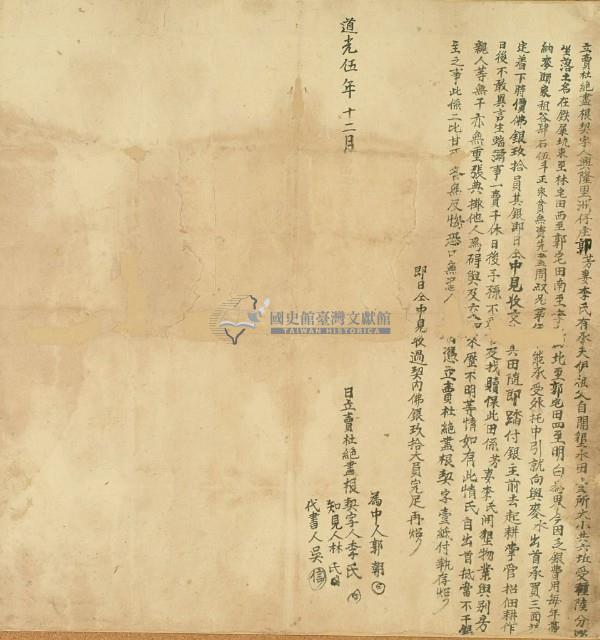 立賣杜絕盡根契字人興隆里洲仔庄郭芳妻李氏有承夫伊祖父自開墾水田壹所大小共六坵受種陸分
坐落土名在鉄屎坑東至林宅田西至郭宅田南至 北至郭宅田四至明白為界今因乏銀費用每年帶
納麥頭家租谷肆石伍斗正家貧無奈先盡問叔兄弟 能承受外托中引就向與麥水 出首承買三面
定着下時價佛銀玖拾員其銀即日仝中見收 其田隨即踏付銀主前去起耕掌管招佃耕作
日後不敢異言生端滋事一賣千休日後子孫不 及找贖保此田係芳妻李氏開墾物業與別房
親人等無干亦無重張典掛他人為碍與及 來歷不明等情如有此情氏自出首抵當不干銀
主之事此係二比甘 各無反悔恐口無 憑立賣杜絕盡根契字壹紙付執存炤
即日仝中見收過契內佛銀玖拾大員完足再炤
為中人郭朝
日立賣杜絕盡根契字人李氏
知見人林氏
代書人吳
道光伍年十二月
國史館臺灣文獻館
TAIWAN HISTORICA